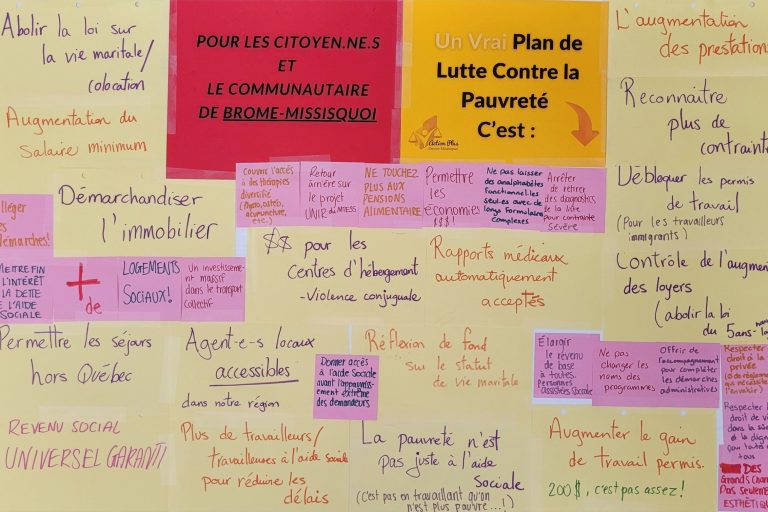 Abolir la loi sur
la vie maritale/
colocation
Augmentation du
Salaire minimum
POUR LES CITOYEN.NE.S
ET
LE COMMUNAUTAIRE
DE BROME-MISSISQUOI
Un Vrai Plan de
Lutte Contre la
Pauvreté
C'est :
Action Plus
L'augmentation
des prestations
Reconnaitre
plus de
contrainte
Débloquer les permis
de travail
(Pour les travailleurs
immigrants)
Contrôle de l'augmen
des loyers
(abolir la loi
du 5ans-
Couvrir l'accès
à des thérapies
diversifié
(physio, ostéo,
acupuncture,
etc.)
Retour
arrière sur
le projet
UNIR du MTESS
NE TOUCHEZ
PLUS AUX
PENSIONS
ALIMENTAIRE
Permettre
les
économies
$$$!
Ne pas laisser
des analphabètes
Functionnel.les
seul.es avec de
longs Formulaires
Complexes
Arrêter
de retirer
des diagnostics
de la liste
pour contrainte
sévère
lléger
es
démarches!
Démarchandiser
l'immobilier
METTRE FIN
L'INTÉRÊT
LA DETTE
DE L'AIDE
SOCIALE
+
de
LOGEMENTS
SOCIAUX!
Un investisse-
ment massif
dans le transport
collectif
$$ pour les
Centres d'hébergement
-Violence conjuguale
Rapports médicaux
automatiquement
acceptés
Permettre les séjours
hors Québec
Agent-e-s locaux
accessibles
dans notre région
Donner accès
à l'aide Sociale
avant l'appauvriss-
ement extrême
des demandeurs
Réflexion de fond
sur le statut
de vie maritale
Élargir
le revenu
de base
à toutes.
Personnes
assistées Sociale
Ne pas
changer les
noms des
programmes
Offrir de
l'accompagnement
pour compléter
les démarches
administratives
Respecter
droit à la
privée
REVENU SOCIAL
UNIVERSEL GARANTI
Plus de travailleurs/
travailleuses à l'aide sociale
pour réduire les
délais
La pauvreté n'est
pas juste à l'aide
Sociale
(C'est pas en travaillant qu'on
n'est plus pauvre...!)
Augmenter le gain
de travail permis.
200$, c'est pas assez!
Respecter
droit de
DES
Grands chan
Pas seulement
ESTHÉTIQUE